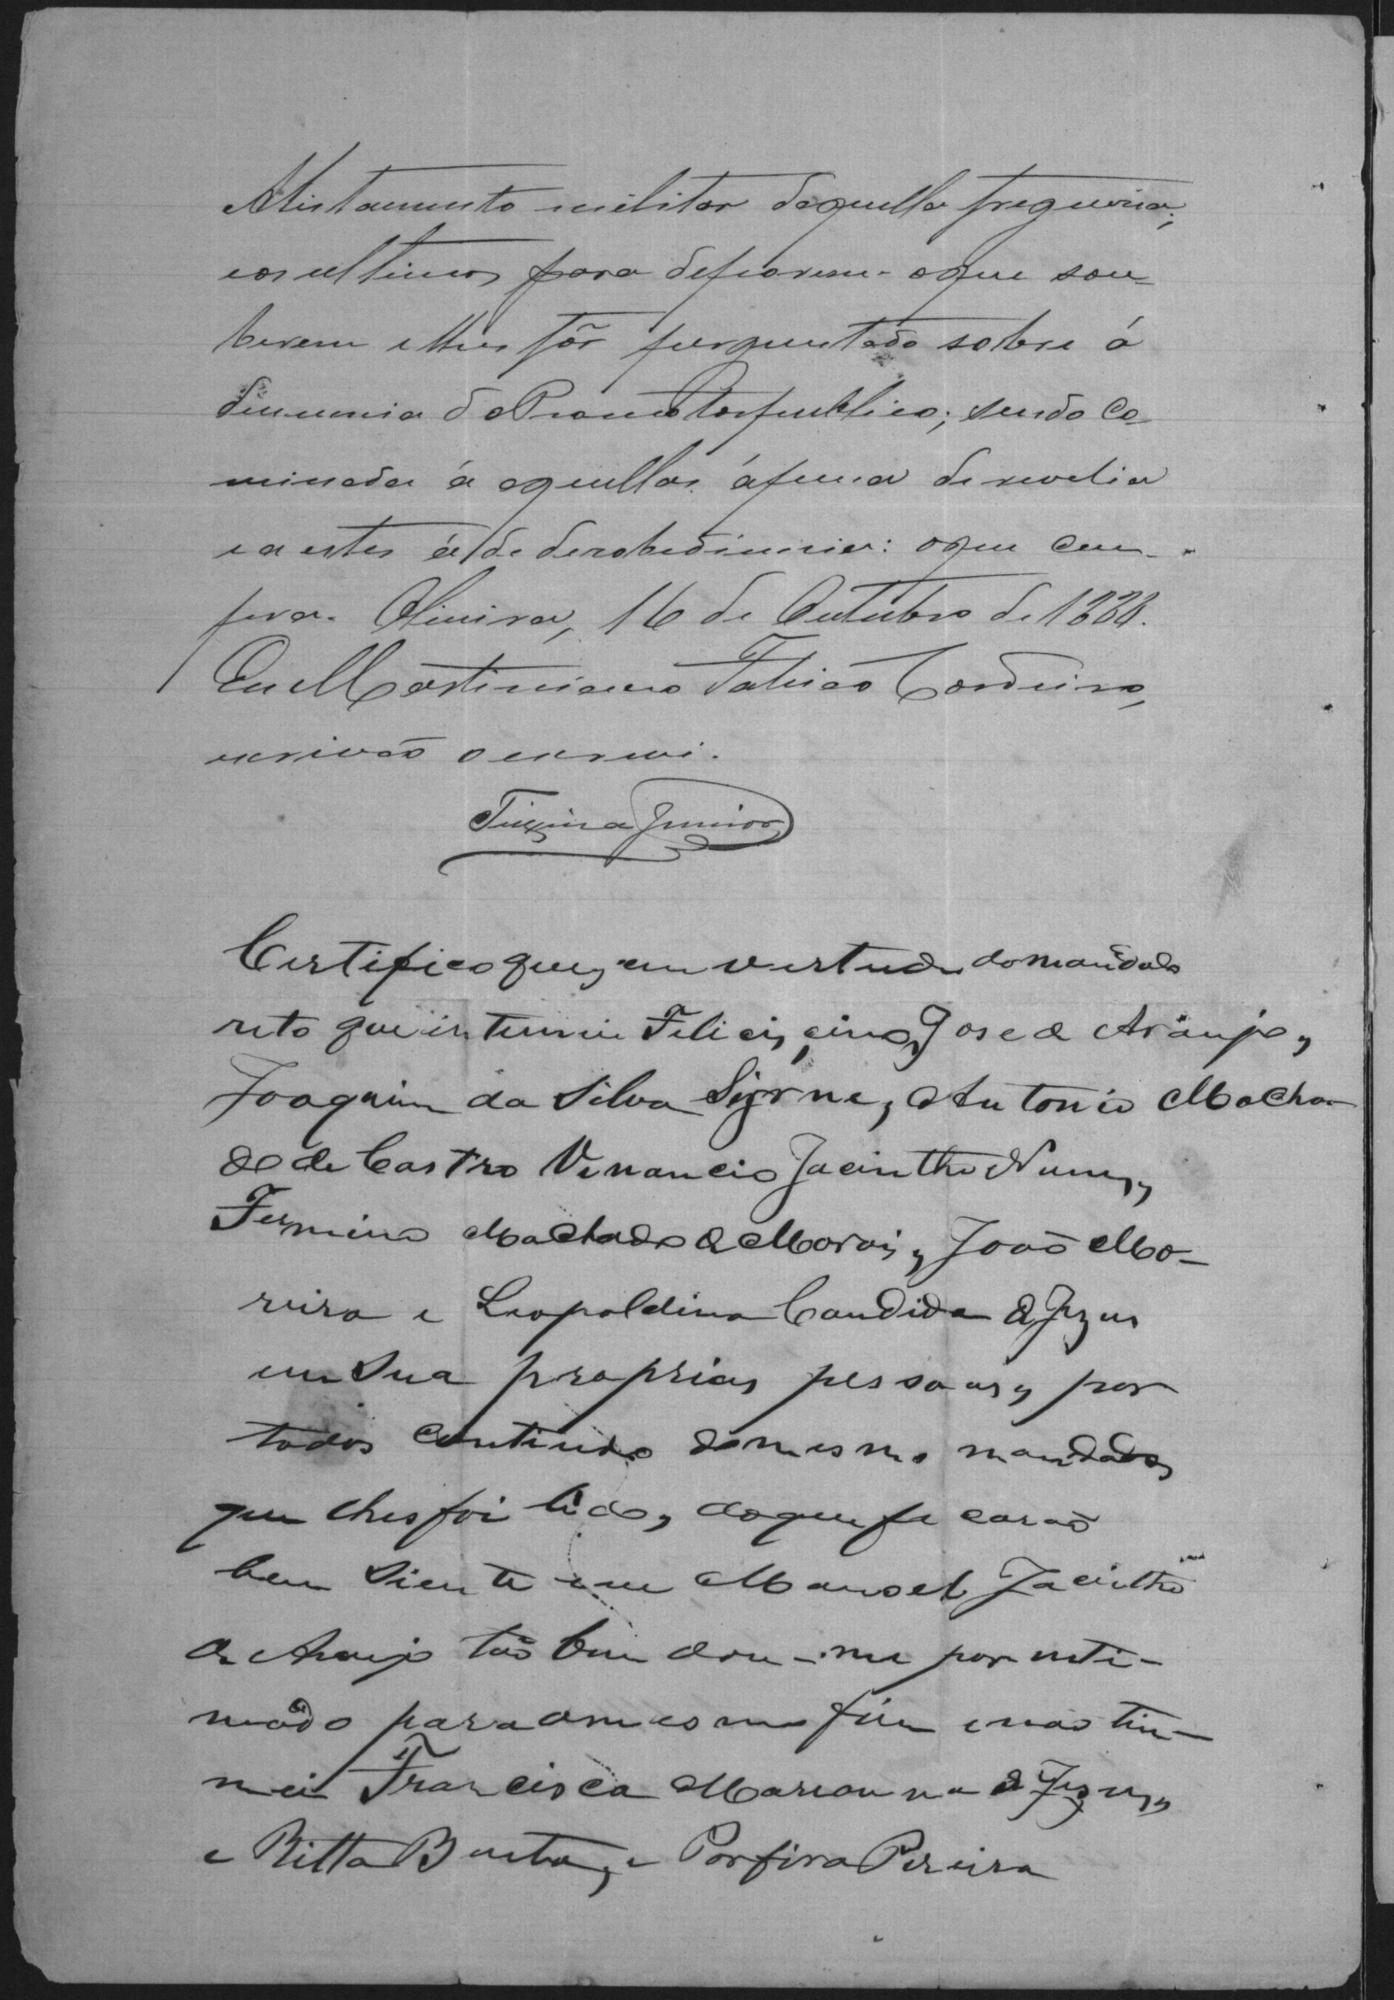 Alistamento militar daquella freguezia;
e os ultimos para deporem o que sou-
berem e lhes fôr perguntado sobre á
denuncia do Promotor publico; sendo co-
minada á aquelles á pena de revelia
e a estes á de desobediencia: o que cum-
pra. Oliveira, 16 de Outubro de 1888.
Eu Martiniano Fabião Cordeiro,
escrivão o escrevi.
Teixeira Junior
Certifico que, em vertude do mandado
reto que intimei José de Araujo,
Joaquim da Silva Syrne, Antonio Macha
do de Castro Venancio Jacintho Nunes,
Fermino Machado de Morais, João Mo-
reira e Leopoldina Candida de Jezus
em sua proprias pessoas, por
todos contiudo do mesmo mandado,
que lhes foi lido, do que ficarão
bem siente eu Manoel Jacintho
de Araujo tão bem dou-me por nti-
mado para o mesmo fim e nao tin-
mei Francisca Marianna de Jezus,
e Ritta Buena, e Porfira Pereira